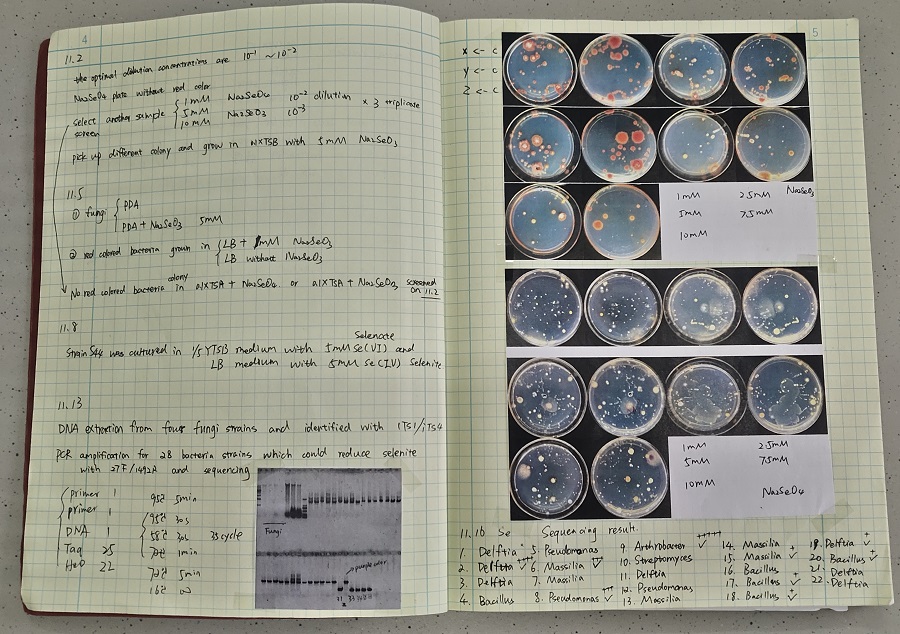 4
11.2
the optimal dilution concentrations are 10⁻¹ ~ 10⁻²
Na₂SeO₄ plate without red color
select another sample { 1mM Na₂SeO₄ 10⁻² dilution × 3 triplicate
screen 5mM Na₂SeO₃ 10⁻³
10 mM
pick up different colony and grow in TSB with 5mM Na₂SeO₃
11.5
① fungi { PDA
PDA + Na₂SeO₃ 5mM
② red colored bacteria grown in { LB + 1mM Na₂SeO₃
LB without Na₂SeO₃
No red colored bacteria colony in 0.1XTSA + Na₂SeO₄ or 0.1XTSA + Na₂SeO₃ screened on 11.2
11.8
Selenate
Strain S44 was cultured in 1/5 YTSB medium with 5mM Se(VI) and
LB medium with 5mM Se(IV) Selenite
11.13
DNA extrortion from four fungi strains and identified with ITS1/ITS4
PCR amplification for 28 bacteria strains which could reduce selenite
with 27F/1492R and sequencing
primer 1 95℃ 5min
primer 1 95℃ 30s
DNA 1 58℃ 30s 35cycle
Taq 25 72℃ 1min
H₂O 22 72℃ 5min
16℃ ∞
Fungi
5
x <- c
y <- c
z <- c
1mM 2.5mM Na₂SeO₃
5mM 7.5mM
10mM
1mM 2.5mM
5mM 7.5mM
10mM Na₂SeO₄
11.16 Se Sequencing result.
1. Delftia 5. Pseudomonas 9. Arthrobacter ++++ ✓ 14. Massilia 19. Delftia + ✓
2. Delftia ✓ 6. Massilia ✓ 10. Streptomyces 15. Massilia + ✓ 20. Bacillus + ✓
3. Delftia 7. Massilia 11. Delftia 16. Bacillus 21. Delftia
4. Bacillus 8. Pseudomonas +++ ✓ 12. Pseudomonas 17. Bacillus + ✓ 22. Delftia
13. Massilia 18. Bacillus + ✓